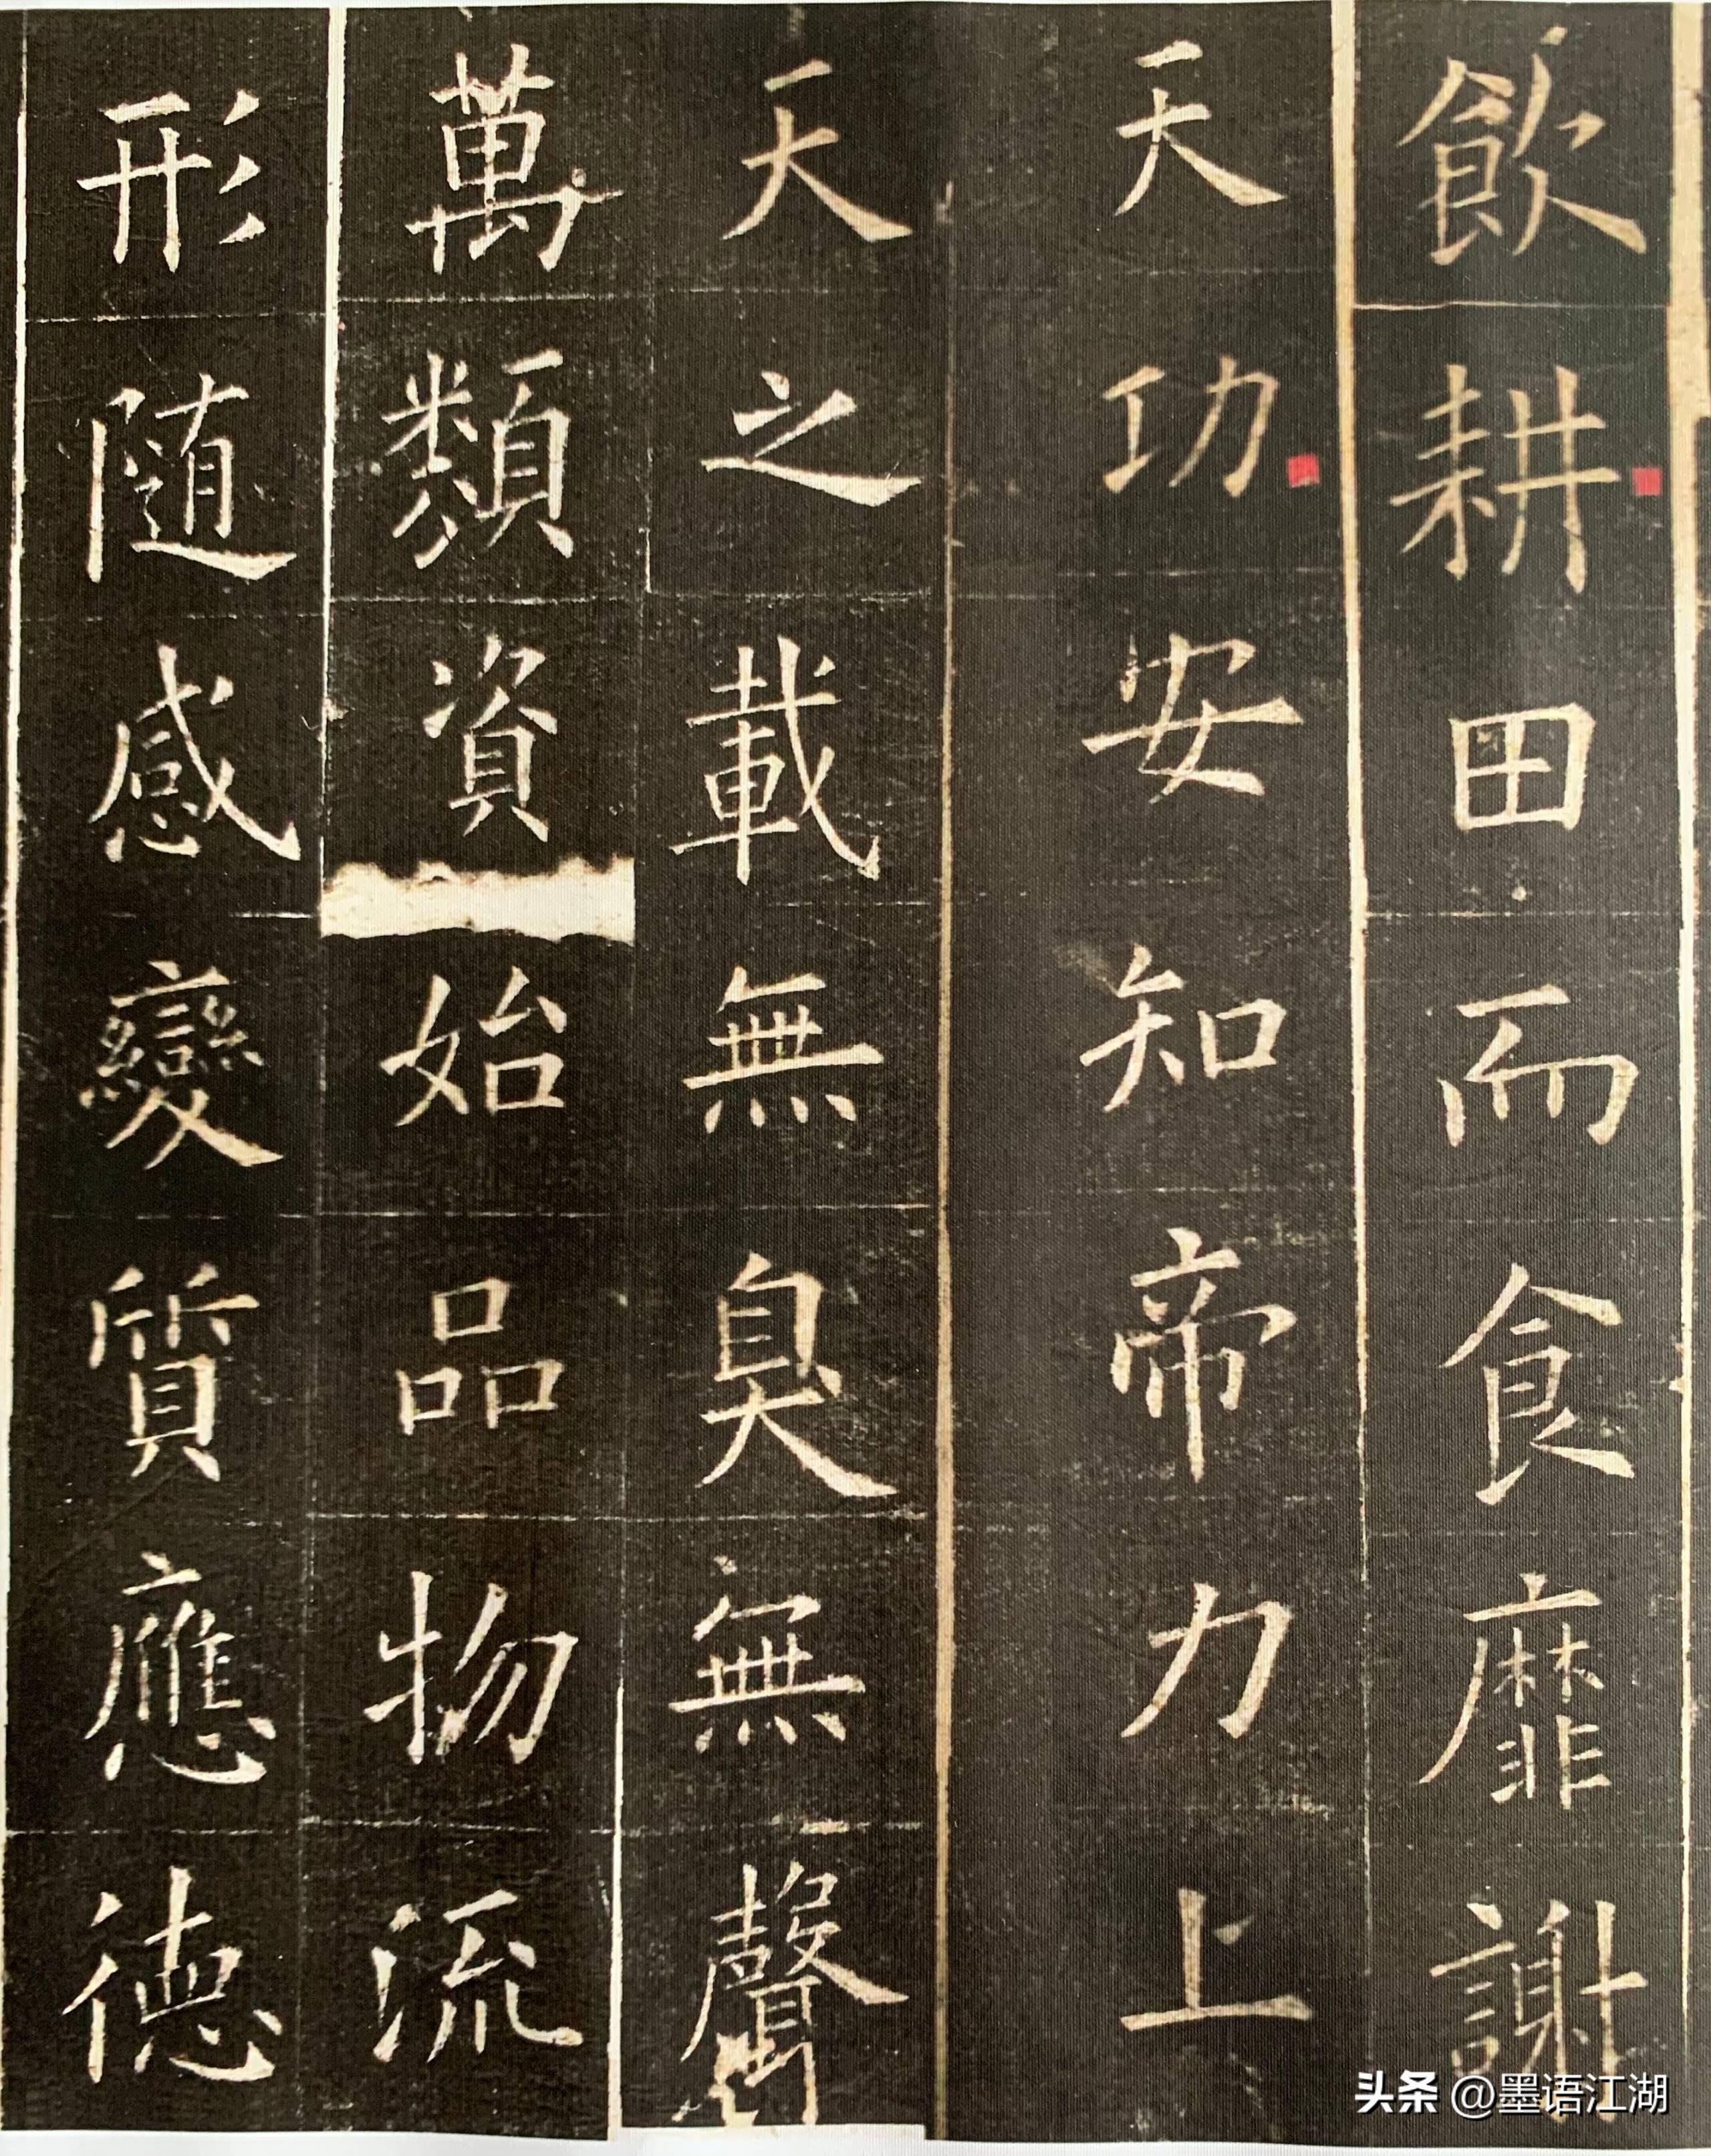 飲耕田而食靡謝
天功安知帝力上
天之載無臭無聲
萬類資始品物流
形随感變質應德
头条 @墨语江湖